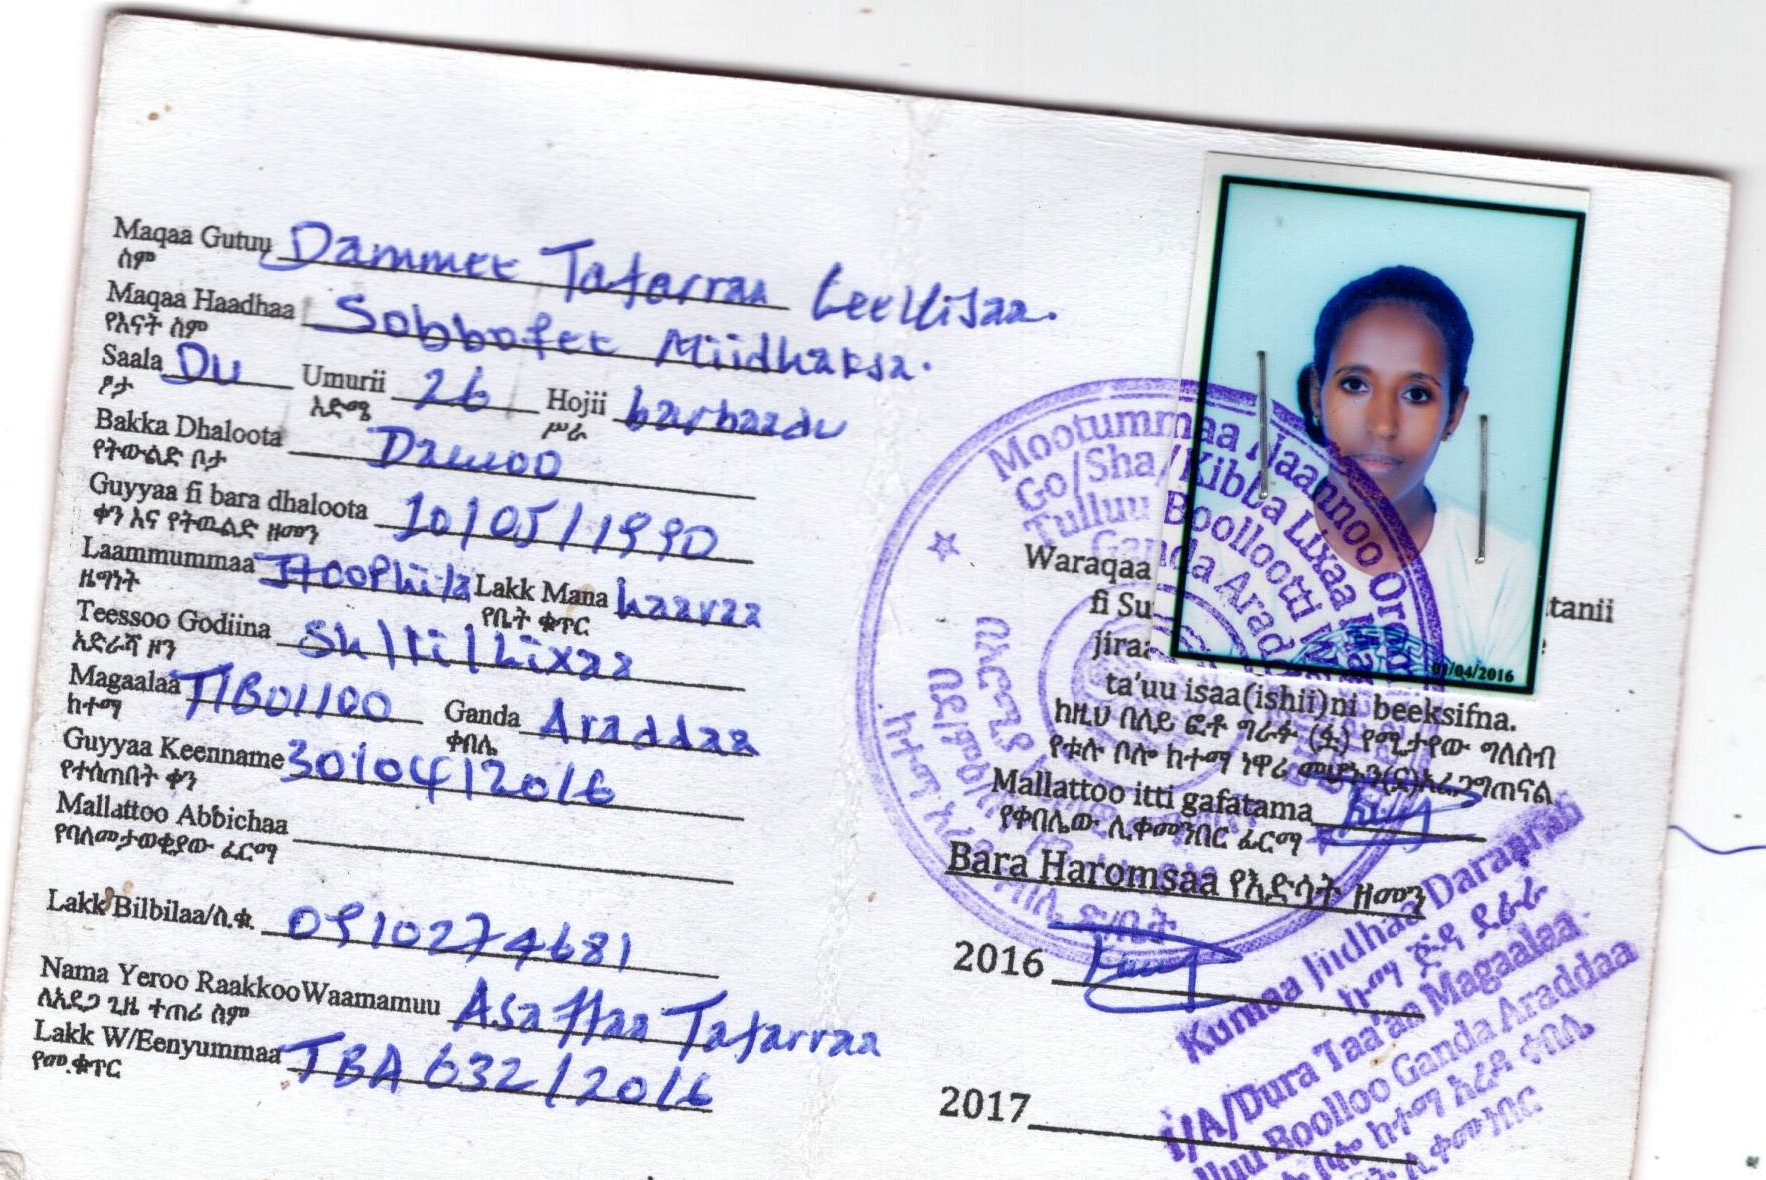 Maqaa Gutuu Dammee Tafarraa Leellisaa.
ስም
Maqaa Haadhaa Sobboqee Miidhaksa.
የእናት ስም
Saala Du Umurii 26 Hojii barbaadu
ፆታ እድሜ ሥራ
Bakka Dhaloota Dawoo
የትውልድ ቦታ
Guyyaa fi bara dhaloota 10/05/1990
ቀን እና የትዉልድ ዘመን
Laammummaa Itoophiya Lakk Mana haaraa
ዜግነት የቤት ቁጥር
Teessoo Godiina Sh/Ki/Lixaa
አድራሻ ዞን
Magaalaa T/Bolloo Ganda Araddaa
ከተማ ቀበሌ
Guyyaa Keenname 30/04/2016
የተሰጠበት ቀን
Mallattoo Abbichaa
የባለመታወቂያው ፊርማ
Lakk Bilbilaa/ስ.ቁ. 0910274681
Nama Yeroo Raakkoo Waamamuu Asaffaa Tafarraa
ለአደጋ ጊዜ ተጠሪ ስም
Lakk W/Eenyummaa TBA 632/2016
የመ.ቁጥር
01/04/2016
Waraqaa tanii
fi Su
jiraa
ta'uu isaa(ishii)ni beeksifna.
ከዚህ በላይ ፎቶ ግራፉ (ፏ) የሚታየው ግለሰብ
የቱሉ ቦሎ ከተማ ነዋሪ መሆኑን(ኗ)እረጋግጠናል
Mallattoo itti gafatama
የቀበሌው ሊቀመንበር ፊርማ
Bara Haromsaa የእድሳት ዘመን
2016
2017
Mootummaa Naannoo Oro
Go/Sha/Kibba Lixaa
Tulluu Boollootti
Ganda Arad
Kumaa Jiidhaa Daraaraa
ኩማ ጅዳ ደራራ
I/A/Dura Taa'aa Magaalaa
lluu Boolloo Ganda Araddaa
ከተማ አረዳ ቀበሌ
ሊቀመንበር